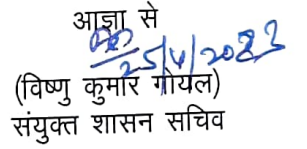 आज्ञा से
25/4/2023
(विष्णु कुमार गोयल)
संयुक्त शासन सचिव